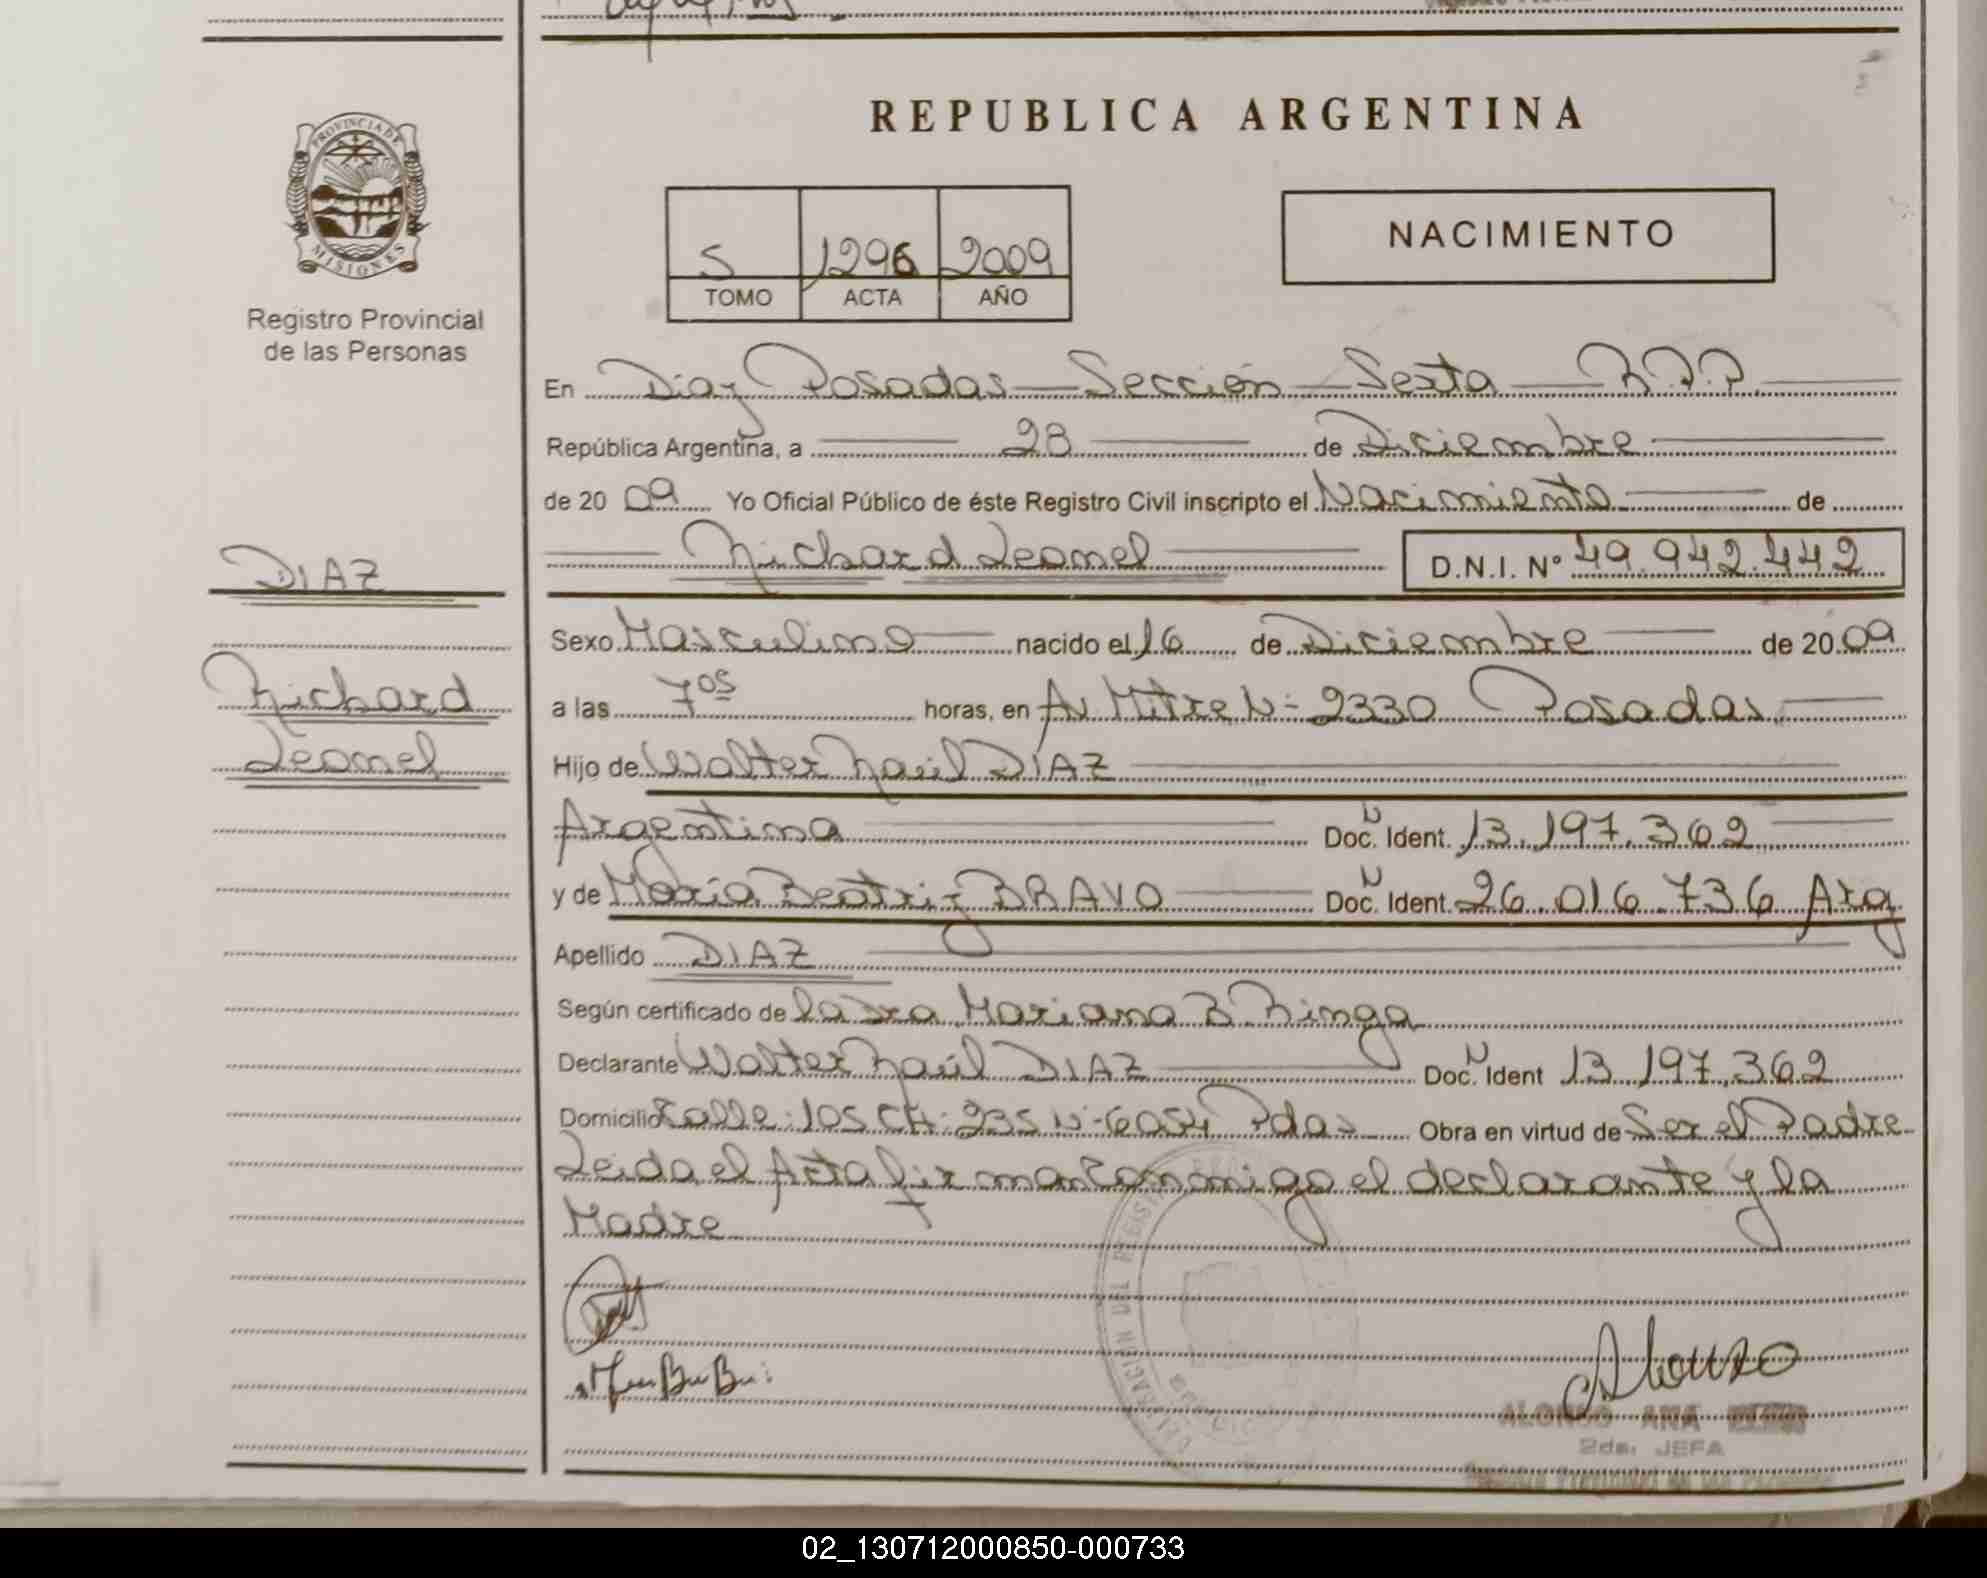 REPUBLICA ARGENTINA
PROVINCIA DE
MISIONES
Registro Provincial
de las Personas
5 1296 2009
TOMO ACTA AÑO
NACIMIENTO
En Diaz Posadas - Sección - Sexta - R.P.P.
República Argentina, a 28 de Diciembre
de 20 09 Yo Oficial Público de éste Registro Civil inscripto el Nacimiento de
Richard Leonel D.N.I. N° 49.942.442
DIAZ
Richard
Leonel
Sexo Masculino nacido el 16 de Diciembre de 20 09
a las 7 os horas, en Av Mitre N- 2330 Posadas
Hijo de Walter Raúl DÍAZ
Argentina Doc. N Ident. 13.197.362
y de María Beatriz BRAVO Doc. N Ident. 26.016.736 Arg
Apellido DIAZ
Según certificado de la Dra Mariana B Ringa
Declarante Walter Raúl DIAZ Doc. N Ident 13.197.362
Domicilio Calle: 105 CH: 235 N-6054 Pdas Obra en virtud de Ser el Padre
Leida el Acta firman Conmigo el declarante y la
Madre
Alonso
ALONSO ANA
2da. JEFA
02_130712000850-000733